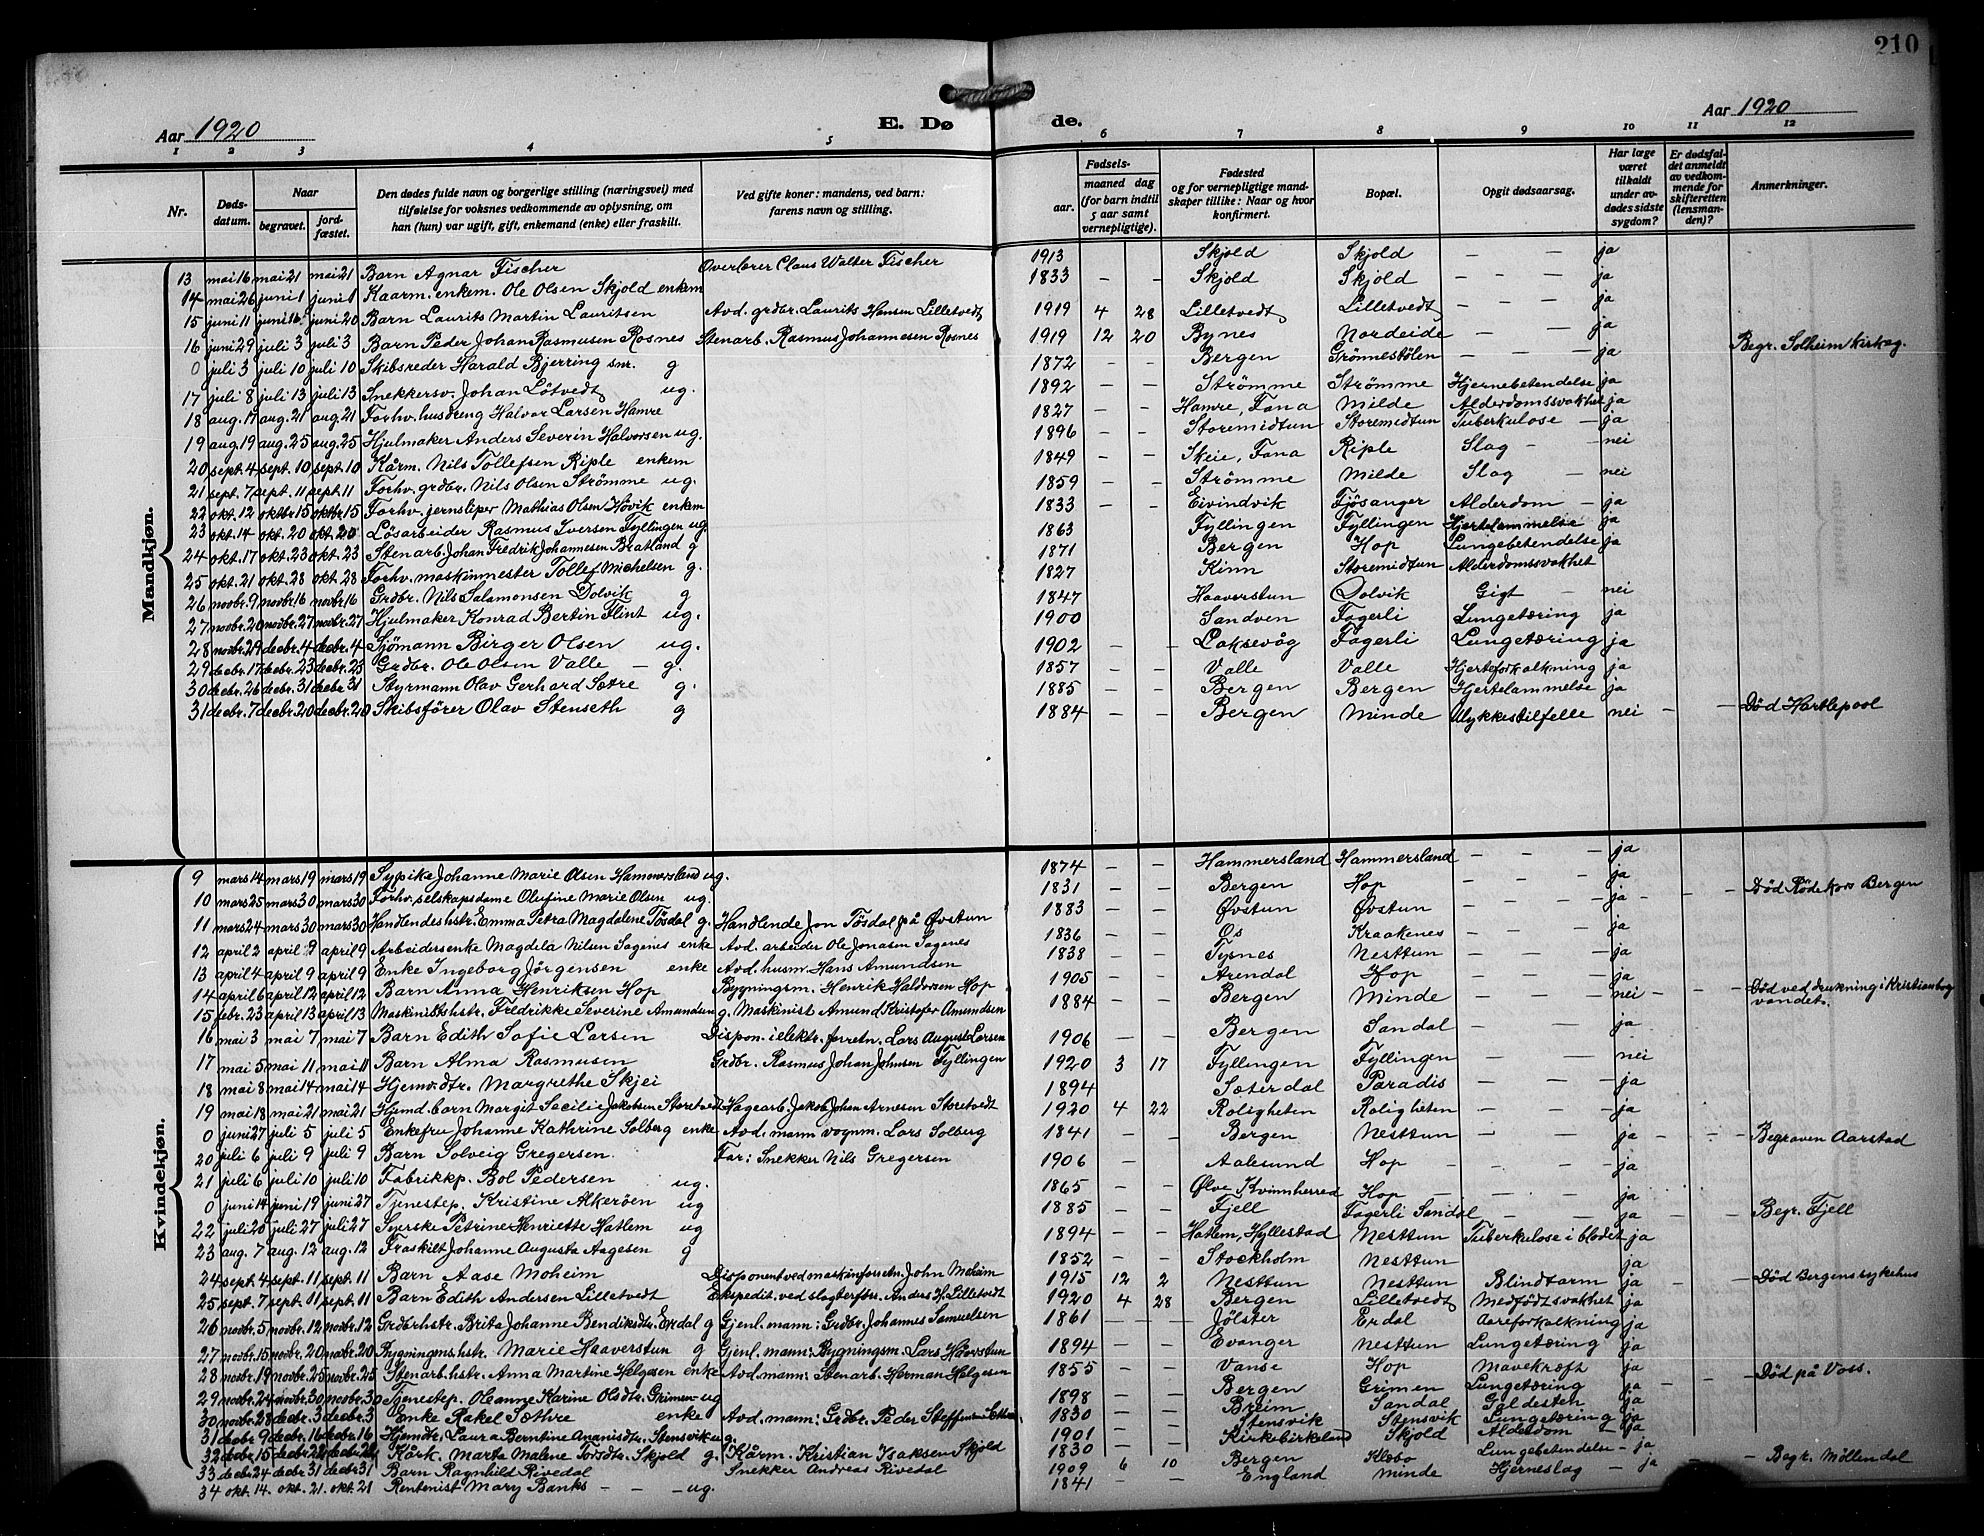 210
Aar 1920 E. Dø de. Aar 1920
1 2 3 4 5 6 7 8 9 10 11 12
Nr. Dødsdatum. Naar begravet. jordfæstet. Den dødes fulde navn og borgerlige stilling (næringsvei) med tilføielse for voksnes vedkommende av oplysning, om han (hun) var ugift, gift, enkemand (enke) eller fraskilt. Ved gifte koner: mandens, ved barn: farens navn og stilling. Fødsels- aar. maaned dag (for barn indtil 5 aar samt vernepligtige). Fødested og for vernepligtige mandskaper tillike: Naar og hvor konfirmert. Bopæl. Opgit dødsaarsag. Har læge været tilkaldt under avdødes sidste sygdom? Er dødsfaldet anmeldt av vedkommende for skifteretten (lensmanden)? Anmerkninger.
Mandkjøn.
13 mai 16 mai 21 mai 21 Barn Agnar Fischer Overlærer Claus Walter Fischer 1913 Skjold Skjold - - - ja
14 mai 26 juni 1 juni 1 Kaarm. enkem. Ole Olsen Skjold enkem 1833 - - Skjold Skjold - - - ja
15 juni 11 juni 16 juni 20 Barn Laurits Martin Lauritsen Avd. grdbr. Laurits Hansen Lilletvedt 1919 4 28 Lilletvedt Lilletvedt - - - ja
16 juni 29 juli 3 juli 3 Barn Peder Johan Rasmussen Rosnes Stenarb. Rasmus Johannesen Rosnes 1919 12 20 Bynes Nordeide - - - ja
0 juli 3 juli 10 juli 10 Skibsreder Harald Bjerring snr. g 1872 - - Bergen Grönnestölen - - - ja Begr. Solheim kirkeg.
17 juli 8 juli 13 juli 13 Snekkersv. Johan Lötvedt ug. 1892 - - Strömme Strömme Hjernebetendelse ja
18 aug. 17 aug. 21 aug. 21 Forhv. husdreng Halvor Larsen Hamre 1827 - - Hamre, Fana Milde Alderdomssvakhet ja
19 aug. 19 aug. 25 aug. 25 Hjulmaker Anders Severin Halvorsen ug. 1896 - - Storemidtun Storemidtun Tuberkulose - ja
20 sept. 4 sept. 10 sept. 10 Kårm. Nils Tollefsen Riple enkem 1849 - - Skeie, Fana Riple Slag - - nei
21 sept. 7 sept. 11 sept. 11 Forhv. grdbr. Nils Olsen Strömme ug. 1859 - - Strömme Milde Slag - nei
22 okt. 12 oktbr. 15 oktbr. 15 Forhv. jernsliper Mathias Olsen Hövik enkem 1833 - - Eivindvik Fjösanger Alderdom - ja
23 okt. 14 okt. 20 okt. 20 Lösarbeider Rasmus Iversen Fyllingen ug. 1863 Fyllingen Fyllingen Hjertelammelse ja
24 okt. 17 okt. 23 okt. 23 Stenarb. Johan Fredrik Johannesen Bratland g 1871 Bergen Hop Lungebetendelse ja
25 okt. 21 okt. 28 okt. 28 Forhv. maskinmester Tollef Michelsen g. 1827 Kinn Storemidtun Alderdomssvakhet
26 novbr. 9 novbr. 16 novbr. 16 Grdbr. Nils Salamonsen Dolvik g 1847 Haaverstun Dolvik Gigt - nei
27 novbr. 20 novbr. 27 novbr. 27 Hjulmaker Konrad Bertin Flint ug. 1900 Sandven Fagerli Lungetæring ja
28 novbr. 29 decbr. 4 decbr. 4 Sjömann Birger Olsen ug. 1902 - - Laksevåg Fagerli Lungetæring ja
29 decbr. 17 decbr. 23 decbr. 23 Grdbr. Ole Olsen Valle - g. 1857 - - Valle Valle Hjerteforkalkning ja
30 decbr. 26 decbr. 31 decbr. 31 Styrmann Olav Gerhard Sætre g. 1885 - - Bergen Bergen Hjertelammelse ja
31 decbr. 7 decbr. 20 decbr. 20 Skibsförer Olav Stenseth g 1884 - - Bergen Minde Ulykkestilfelle nei - - Död Hartlepool
Kvindekjøn.
9 mars 14 mars 19 mars 19 Sypike Johanne Marie Olsen Hammersland ug. 1874 - - Hammersland Hammersland - - - ja
10 mars 25 mars 30 mars 30 Forhv. selskapsdame Olufine Marie Olsen ug. 1831 - - Bergen Hop - - - ja - - Död Röde Kors Bergen
11 mars 24 mars 30 mars 30 Handlendeshstr. Emma Petra Magdalene Tösdal g. Handlende Jon Tösdal på Øvstun 1883 - - Øvstun Øvstun - - - ja
12 april 2 april 9 april 9 Arbeidersenke Magdela Nilsen Sagenes enke Avd. arbeider Ole Jonasen Sagenes 1836 - - Os Kraakenes - - - ja
13 april 4 april 9 april 9 Enke Ingeborg Jörgensen enke Avd. husm. Hans Amundsen 1838 - - Tysnes Nesttun - - - ja
14 april 6 april 12 april 12 Barn Anna Henriksen Hop Bygningsm. Henrik Halvorsen Hop 1905 - - Arendal Hop - - - ja
15 febr. 23 april 13 april 13 Maskinisthstr. Fredrikke Severine Amundsen g. Maskinist Amund Kristofer Amundsen 1884 - - Bergen Minde - - - nei - - Död ved drukning i Kristianborgvandet.
16 mai 3 mai 7 mai 7 Barn Edith Sofie Larsen Dispon. i elektr. forretn. Lars August Larsen 1906 - - Bergen Sandal - - - ja
17 mai 5 mai 11 mai 11 Barn Alma Rasmusen Grdbr. Rasmus Johan Johnsen Fyllingen 1920 3 17 Fyllingen Fyllingen - - - nei
18 mai 8 mai 14 mai 14 Hjemv. dtr. Margrethe Skjei 1894 Sæterdal Paradis - - - ja
19 mai 18 mai 21 mai 21 Hjemd. barn Margit Secilie Jakobsen Storetvedt Hagearb. Jakob Johan Arnesen Storetvedt 1920 4 22 Roligheten Roligheten - - - ja
0 juni 27 juli 5 juli 5 Enkefru Johanne Kathrine Solberg enke Avd. mann vognm. Lars Solberg 1841 - - Bergen Nesttun - - - ja - - - Begraven Aarstad
20 juli 6 juli 9 juli 9 Barn Solveig Gregersen. Far: Snekker Nils Gregersen 1906 - - Aalesund Hop - - - ja
21 juli 6 juli 10 juli 10 Fabrikkp. Bol Pedersen ug. 1865 - - Ølve Kvinnherred Hop - - - ja
0 juni 14 juni 19 juni 27 Tjenestep. Kristine Alkeröen ug 1885 - - Fjell Fagerli Sandal - - - ja Begr. Fjell
22 juli 20 juli 27 juli 27 Syerske Petrine Henriette Hatlem ug 1894 - - Hatlem, Hyllestad Nesttun Tuberkulose i blodet ja
23 aug. 7 aug. 12 aug. 12 Fraskilt Johanne Augusta Aagesen g 1852 - - Stockholm Nesttun ja
24 sept. 4 sept. 11 sept. 11 Barn Aase Moheim Disponent ved maskinforretn. John Moheim 1915 12 2 Nesttun Nesttun Blindtarm ja - - Död Bergens sykehus
25 sept. 7 sept. 11 sept. 11 Barn Edith Andersen Lilletvedt Ekspedit. ved slagterftr. Anders H. Lilletvedt 1920 4 28 Bergen Lilletvedt Medfödt svakhet ja
26 novbr. 5 novbr. 12 novbr. 12 Grdbrhstr. Brita Johanne Bendiksdtr. Erdal g Gjenl. mann: Grdbr. Johannes Samuelsen 1861 - - Jölster Erdal Aareforkalkning ja
27 novbr. 15 novbr. 20 novbr. 20 Bygningsm.hstr. Marie Haaverstun g Gjenl. mann: Bygningsm. Lars Haaverstun 1894 - - Evanger Nesttun Lungetæring ja
28 novbr. 19 novbr. 25 novbr. 25 Stenarb.hstr. Anna Martine Helgesen enke Avd. mann: Stenarb. Herman Helgesen 1855 - - Vanse Hop Mavekræft ja
29 novbr. 24 novbr. 30 novbr. 30 Tjenestep. Oleanne Karine Olsdtr. Grimen ug 1898 - - Bergen Grimen Lungetæring ja - - Död på Voss.
30 novbr. 28 decbr. 3 decbr. 3 Enke Rakel Sæthre enke Avd. mann: Grdbr. Peder Steffensen 1830 - - Breim Sandal Galdesten ja
31 decbr. 9 decbr. 16 decbr. 16 Hjemdtr. Laura Berntine Ananisdtr. Stensvik ug. 1901 - - Stensvik Stensvik Lungetæring ja
32 decbr. 15 decbr. 21 decbr. 21 Kårk. Marta Malene Torsdtr. Skjold g. Kårm. Kristian Isaksen Skjold 1830 - - Kirkebirkeland Skjold Alderdom - ja
33 decbr. 24 decbr. 31 decbr. 31 Barn Ragnhild Rivedal Snekker Andreas Rivedal 1909 6 10 Bergen Lungebetendelse - ja
34 okt. 14. okt. 21. okt. 21 Rentenist Mary Banks - - - ug. 1841 - England Minde Hjerneslag - ja - - Begr. Möllendal